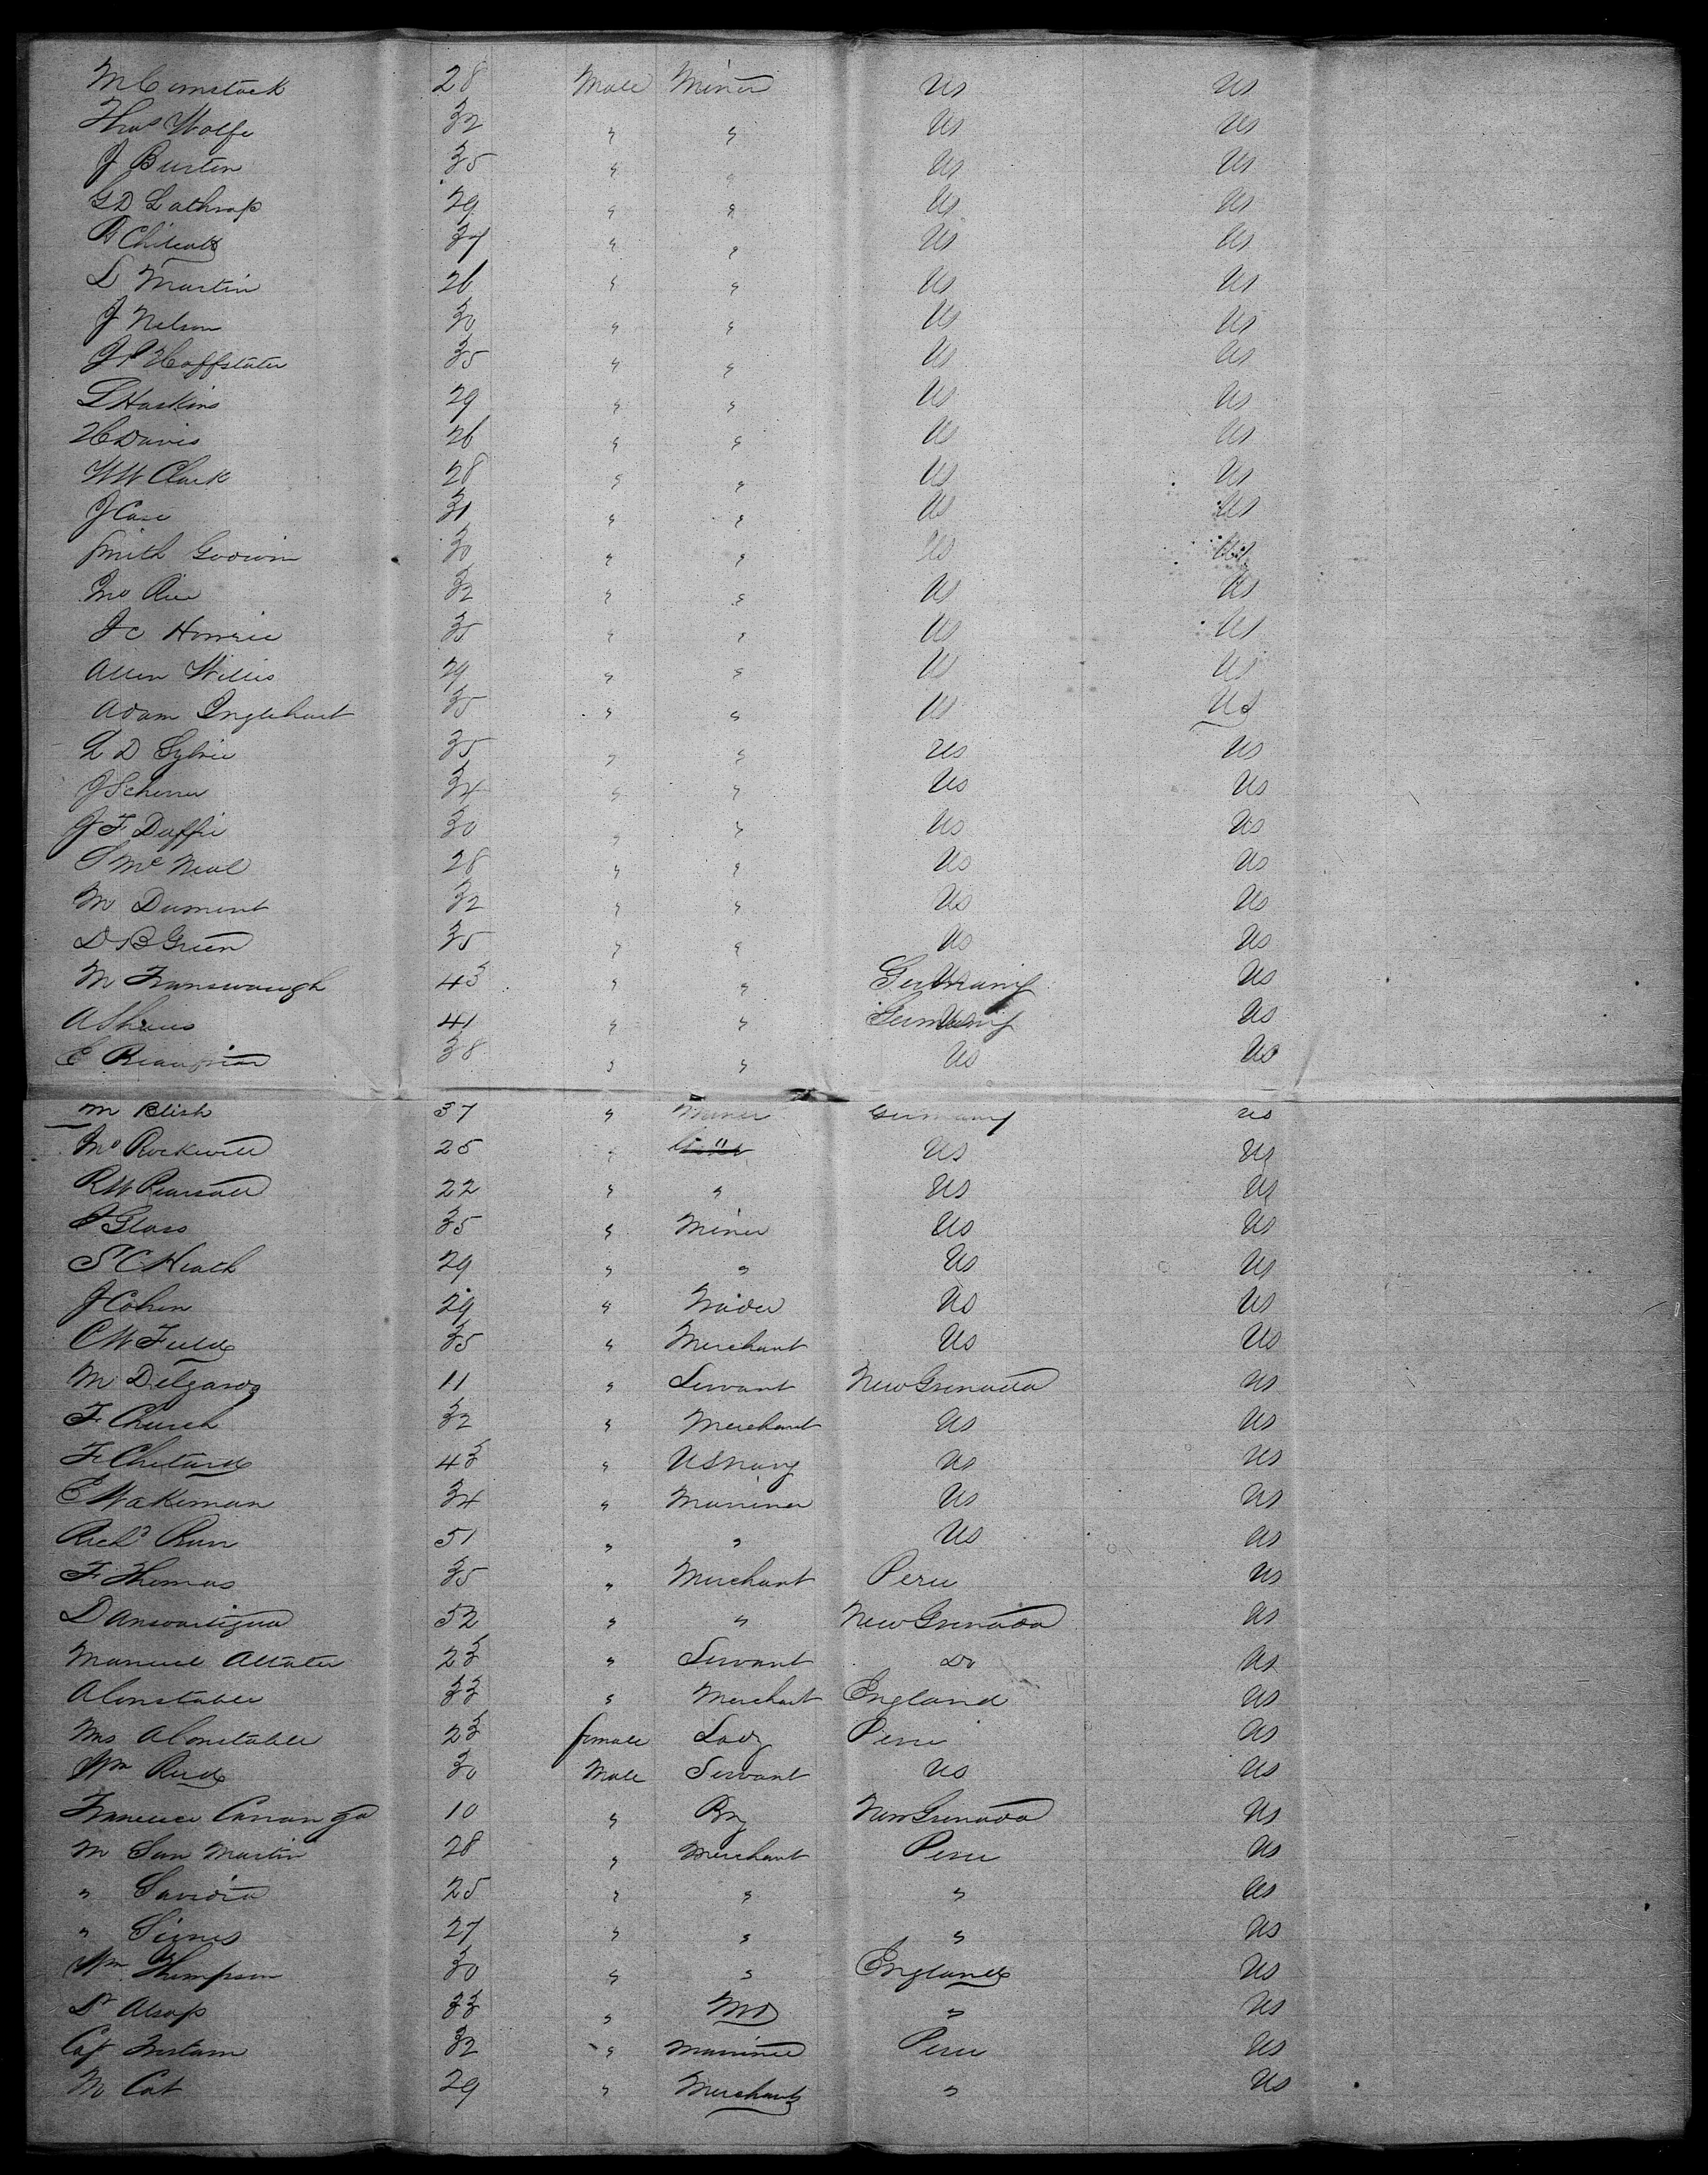 M Comstock 28 Male Miner US US
Thos Wolfe 32 " " US US
J Burton 35 " " US US
G D Lathrop 29 " " US US
34 " " US US
D Martin 26 " " US US
J Nelson 30 " " US US
J P Hoffstater 35 " " US US
L Haskins 29 " " US US
H Davis 26 " " US US
W W Clark 28 " " US US
J Case 31 " " US US
Smith Goodwin 30 " " US US
Jno Rice 32 " " US US
J C 35 " " US US
Allen Willis 29 " " US US
Adam Inglehart 35 " " US US
D 35 " " US US
J 34 " " US US
J F Duffie 30 " " US US
S McNeal 28 " " US US
M Dument 32 " " US US
D B Green 35 " " US US
M 43 " " Germany US
A 41 " " Germany US
E 38 " " US US
M Blish 37 " Miner Germany US
Jno Rockwell 25 " " US US
R W Pearsall 22 " " US US
Glass 35 " Miner US US
S C Heath 29 " " US US
J Cohen 29 " Trader US US
C W Field 35 " Merchant US US
M Delgardo 11 " Servant New Grenada US
F Church 32 " Merchant US US
F Chetard 43 " US Navy US US
E Wakeman 34 " Mariner US US
Richd 51 " " US US
F Thomas 35 " Merchant Peru US
D 52 " " New Grenada US
Manuel 23 " Servant Do US
A Constable 33 " Merchant England US
Mrs A Constable 23 female Lady Peru US
Wm Reed 30 Male Servant US US
10 " Boy New Grenada US
M San Martin 28 " Merchant Peru US
" 25 " " " US
" 27 " " " US
Wm Thompson 30 " " England US
Dr Alsop 33 " MD " US
Cap 32 " Mariner Peru US
M Cat 29 " Merchant " US